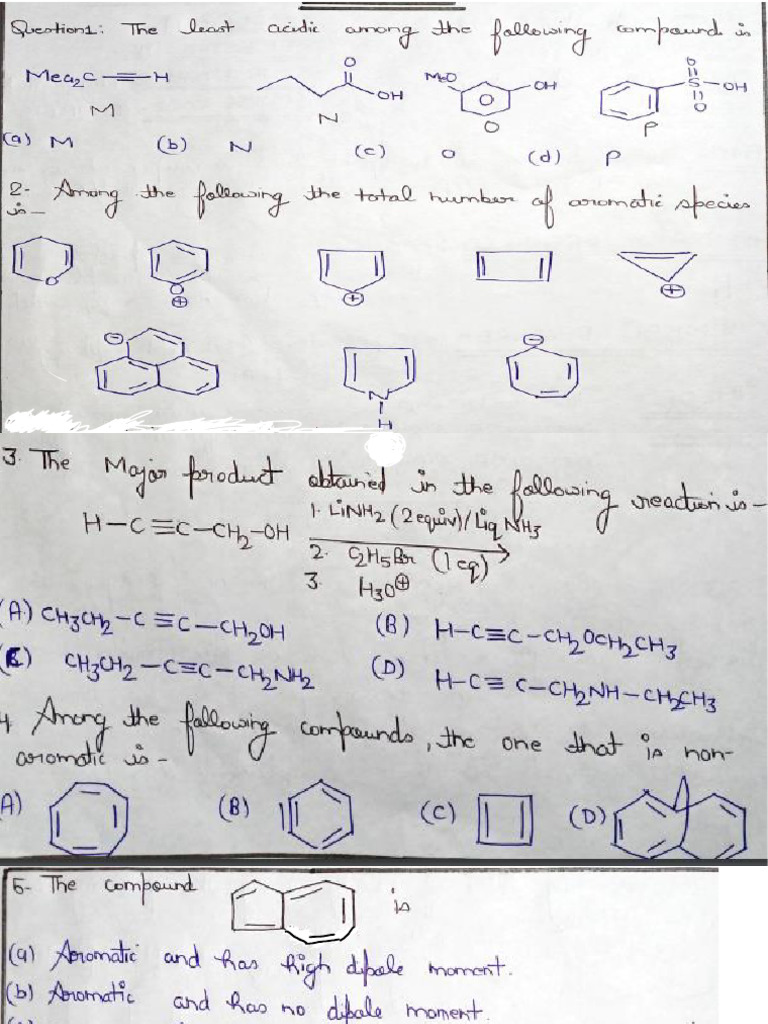 Question1: The least acidic among the following compound is
Me2C≡H
O
OH
MeO
OH
O
O
S
OH
O
M
N
O
P
(a) M (b) N (c) O (d) P
2- Among the following the total number of aromatic species
is-
O
O
⊕
⊕
⊕
⊖
N
H
⊖
3. The Major product obtained in the following reaction is-
H-C≡C-CH2-OH
1. LiNH2 (2equiv)/Liq NH3
2. C2H5Br (1eq)
3. H3O⊕
(A) CH3CH2-C≡C-CH2OH (B) H-C≡C-CH2OCH2CH3
(C) CH3CH2-C≡C-CH2NH2 (D) H-C≡C-CH2NH-CH2CH3
4. Among the following compounds, the one that is non-
aromatic is-
A) (B) (C) (D)
5- The compound is
(a) Aromatic and has high dipole moment.
(b) Aromatic and has no dipole moment.